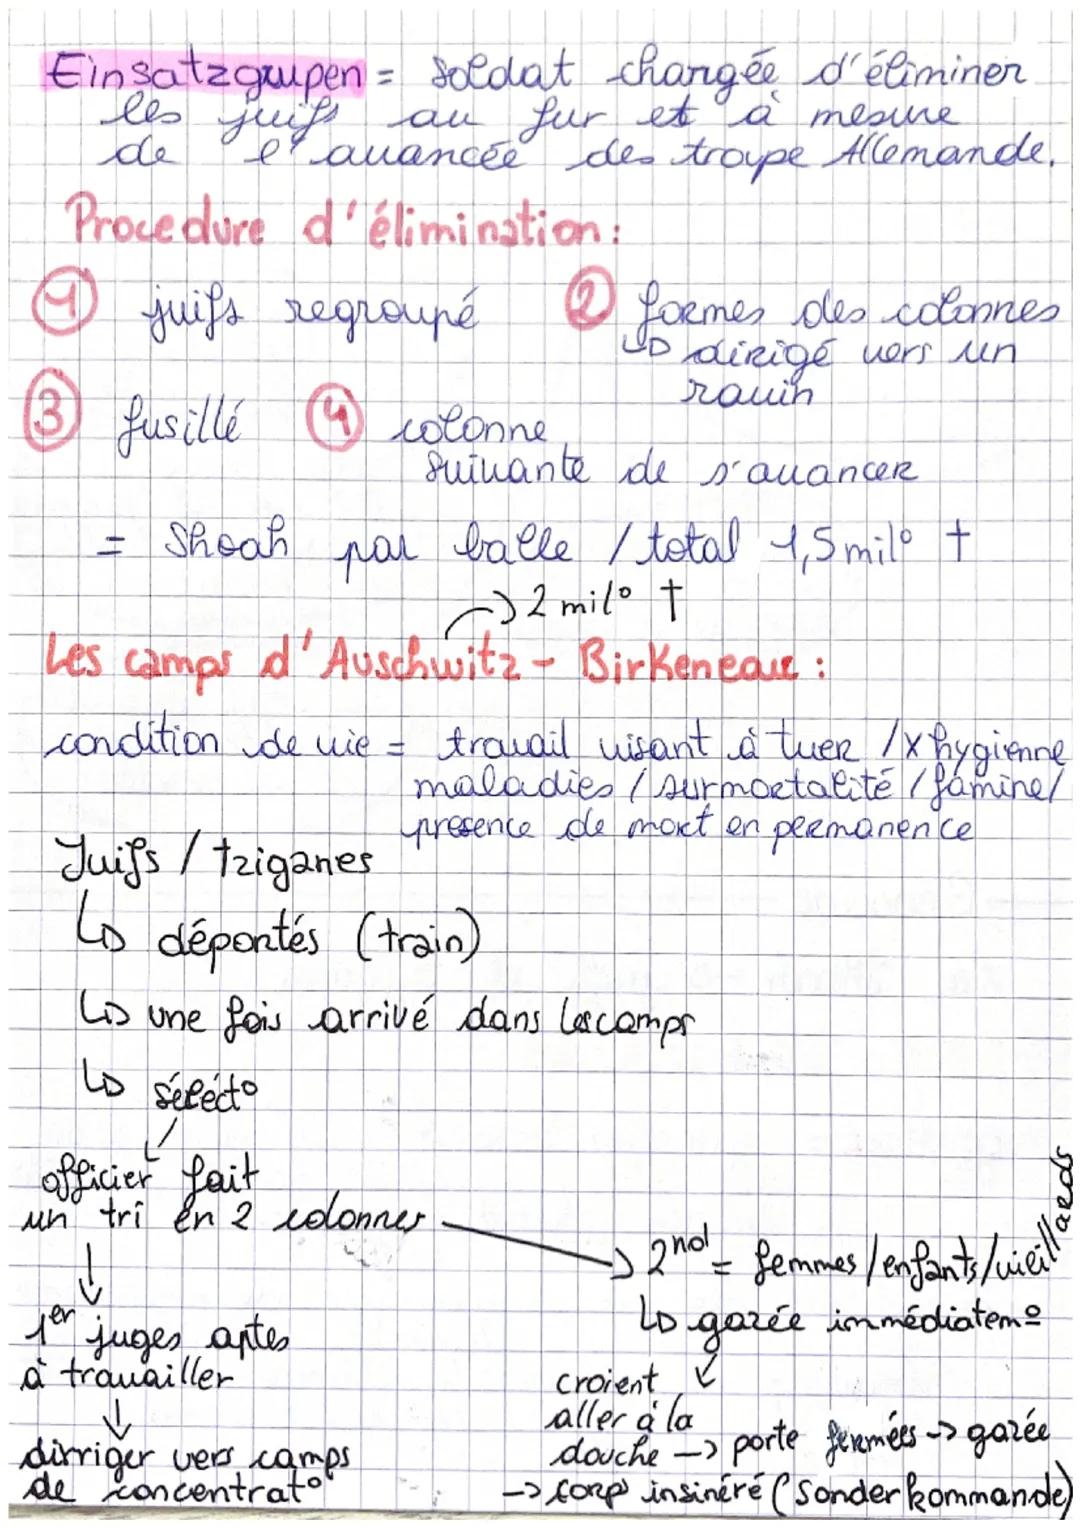 Einsatzgrupen = soldat chargée d'éliminer
les juifs au fur et à mesure
de l'avancée des troupe Allemande.
Procedure d'élimination :
1 juifs regroupé
2 formes des colonnes
↳ dirigé vers un
ravin
3 fusillé
4 colonne
suivante de s'avancer
= Shoah par balle / total 1,5 mil° †
→ 2 mil° †
Les camps d'Auschwitz - Birkeneau :
condition de vie = travail visant à tuer / x hygienne
maladies / surmortalité / famine /
presence de mort en permanence
Juifs / tziganes
↳ déportés (train)
↳ une fois arrivé dans les camps
↳ séléct°
officier fait
un tri en 2 colonnes
↓
1er juges aptes
à travailler
↓
dirriger vers camps
de concentrat°
→ 2nd = femmes / enfants / vieillards
↳ gazée immédiatem°
croient
aller à la
douche → porte fermées → gazée
→ corp insinéré (Sonderkommande)